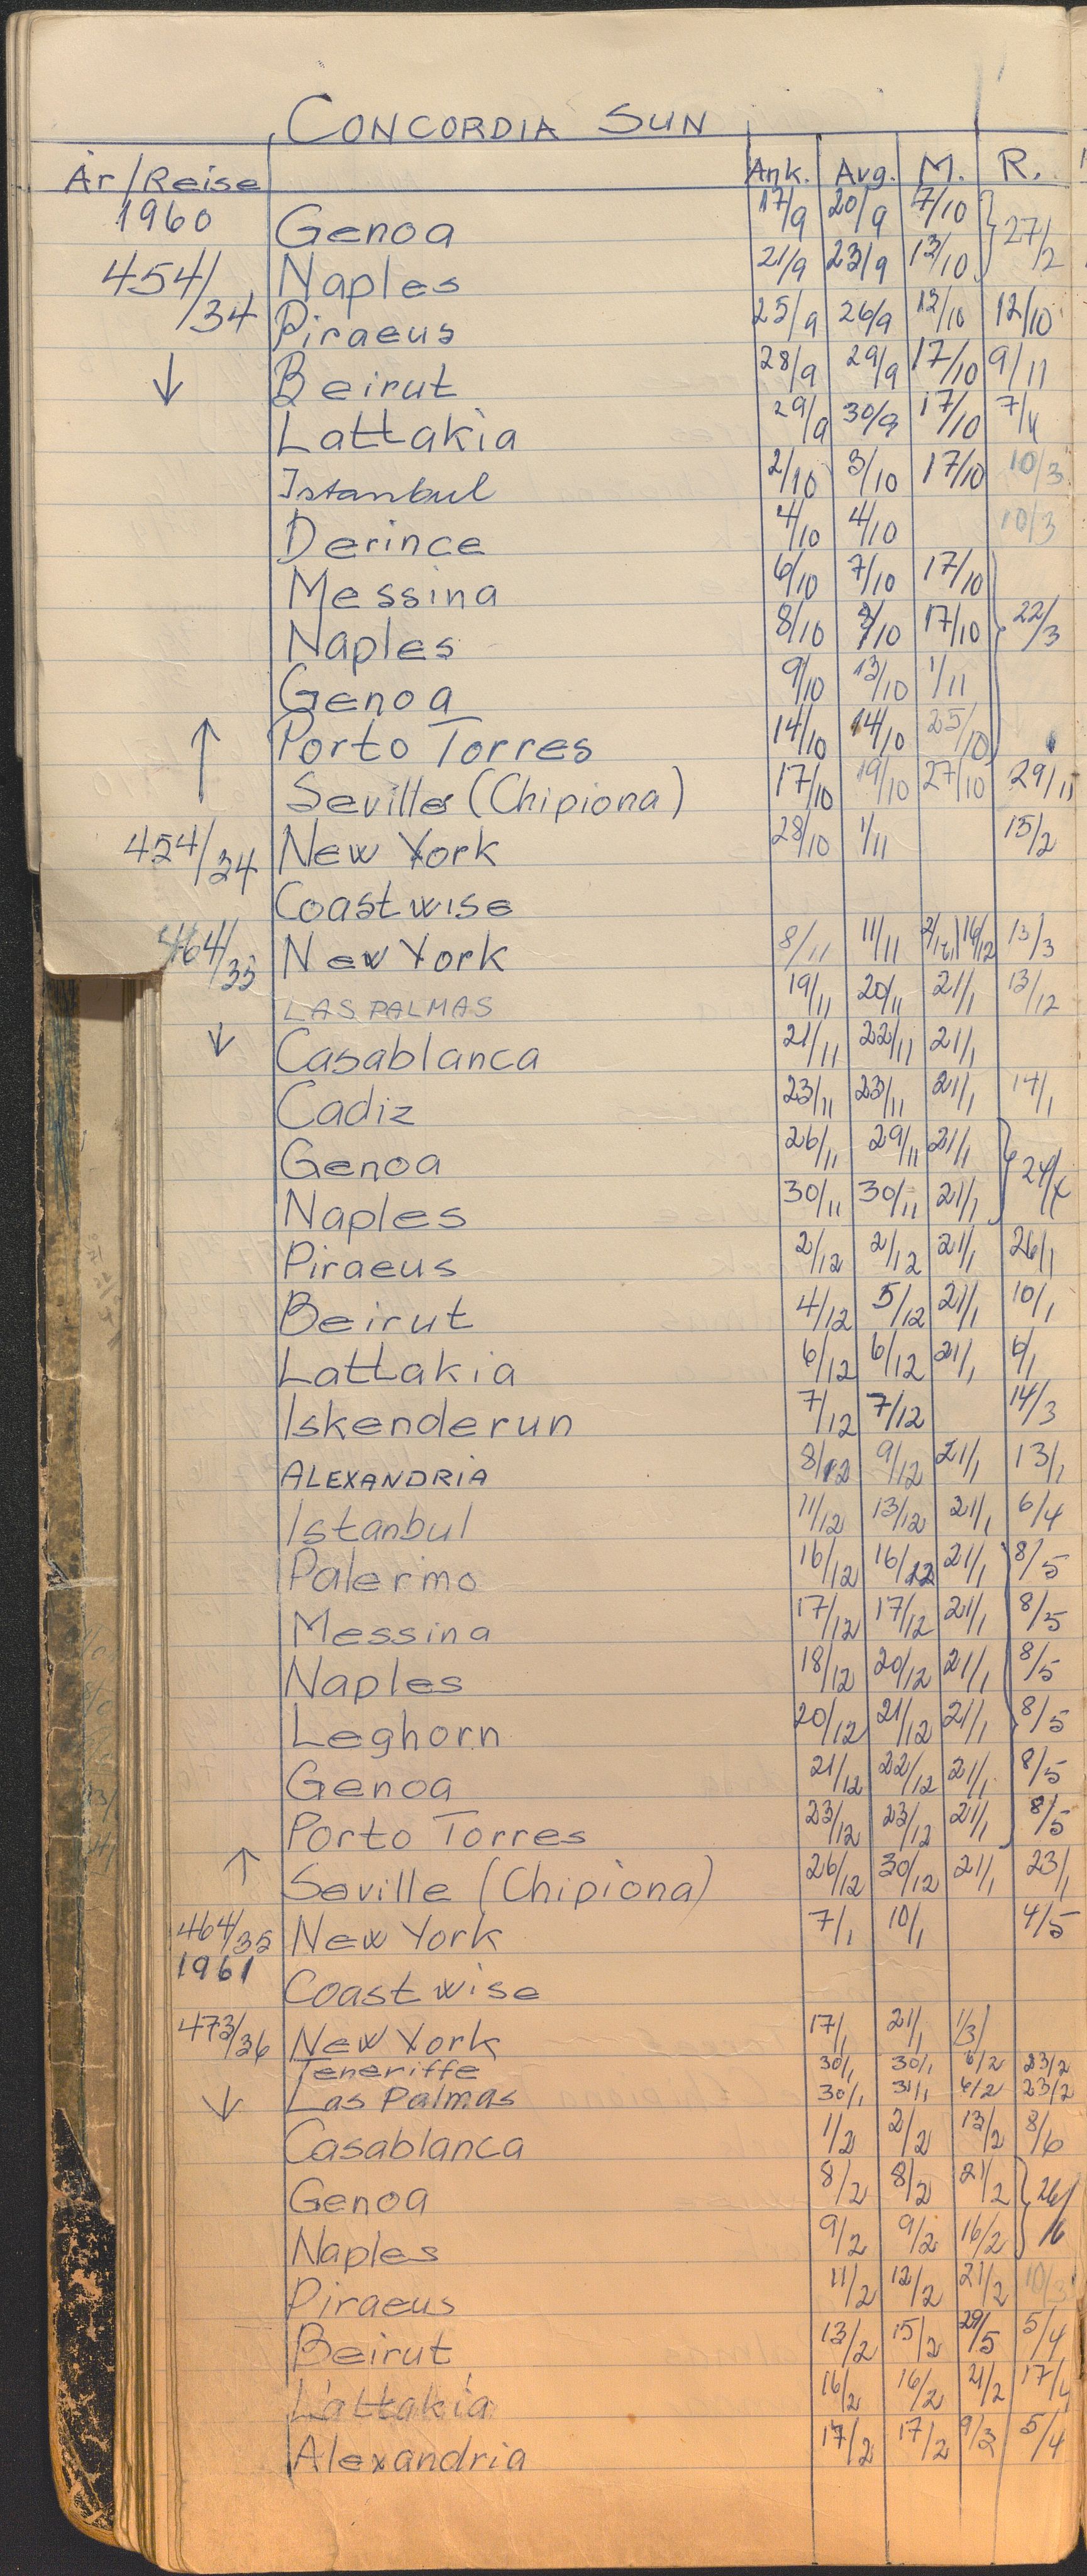 CONCORDIA SUN
År/Reise Ank. Avg. M. R.
1960 Genoa 17/9 20/9 7/10
454/34 Naples 21/9 23/9 13/10 } 27/2
Piraeus 25/9 26/9 12/10 12/10
↓ Beirut 28/9 29/9 17/10 9/11
Lattakia 29/9 30/9 17/10 7/11
Istanbul 2/10 3/10 17/10 10/3
Derince 4/10 4/10 10/3
Messina 6/10 7/10 17/10
Naples 8/10 8/10 17/10 } 22/3
Genoa 9/10 13/10 1/11
↑ Porto Torres 14/10 14/10 25/10
Seville (Chipiona) 17/10 19/10 27/10 29/11
454/34 New York 28/10 1/11 15/2
Coastwise
464/35 New York 8/11 11/11 16/12 13/3
LAS PALMAS 19/11 20/11 21/1 13/12
↓ Casablanca 21/11 22/11 21/1
Cadiz 23/11 23/11 21/1 14/1
Genoa 26/11 29/11 21/1
Naples 30/11 30/11 21/1
Piraeus 2/12 2/12 21/1 26/1
Beirut 4/12 5/12 21/1 10/1
Lattakia 6/12 6/12 21/1 6/1
Iskenderun 7/12 7/12 14/3
ALEXANDRIA 8/12 9/12 21/1 13/1
Istanbul 11/12 13/12 21/1 6/4
Palermo 16/12 16/12 21/1 8/5
Messina 17/12 17/12 21/1 8/5
Naples 18/12 20/12 21/1 8/5
Leghorn 20/12 21/12 21/1 8/5
Genoa 21/12 22/12 21/1 8/5
Porto Torres 23/12 23/12 21/1 8/5
↑ Seville (Chipiona) 26/12 30/12 21/1 23/1
464/35 New York 7/1 10/1 4/5
1961 Coastwise
473/36 New York 17/1 21/1 1/3
Teneriffe 30/1 30/1 6/2 23/2
↓ Las Palmas 30/1 31/1 6/2 23/2
Casablanca 1/2 2/2 13/2 8/6
Genoa 8/2 8/2 21/2
Naples 9/2 9/2 16/2
Piraeus 11/2 12/2 21/2 10/3
Beirut 13/2 15/2 29/5 5/4
Lattakia 16/2 16/2 21/2 17/4
Alexandria 17/2 17/2 9/3 5/4